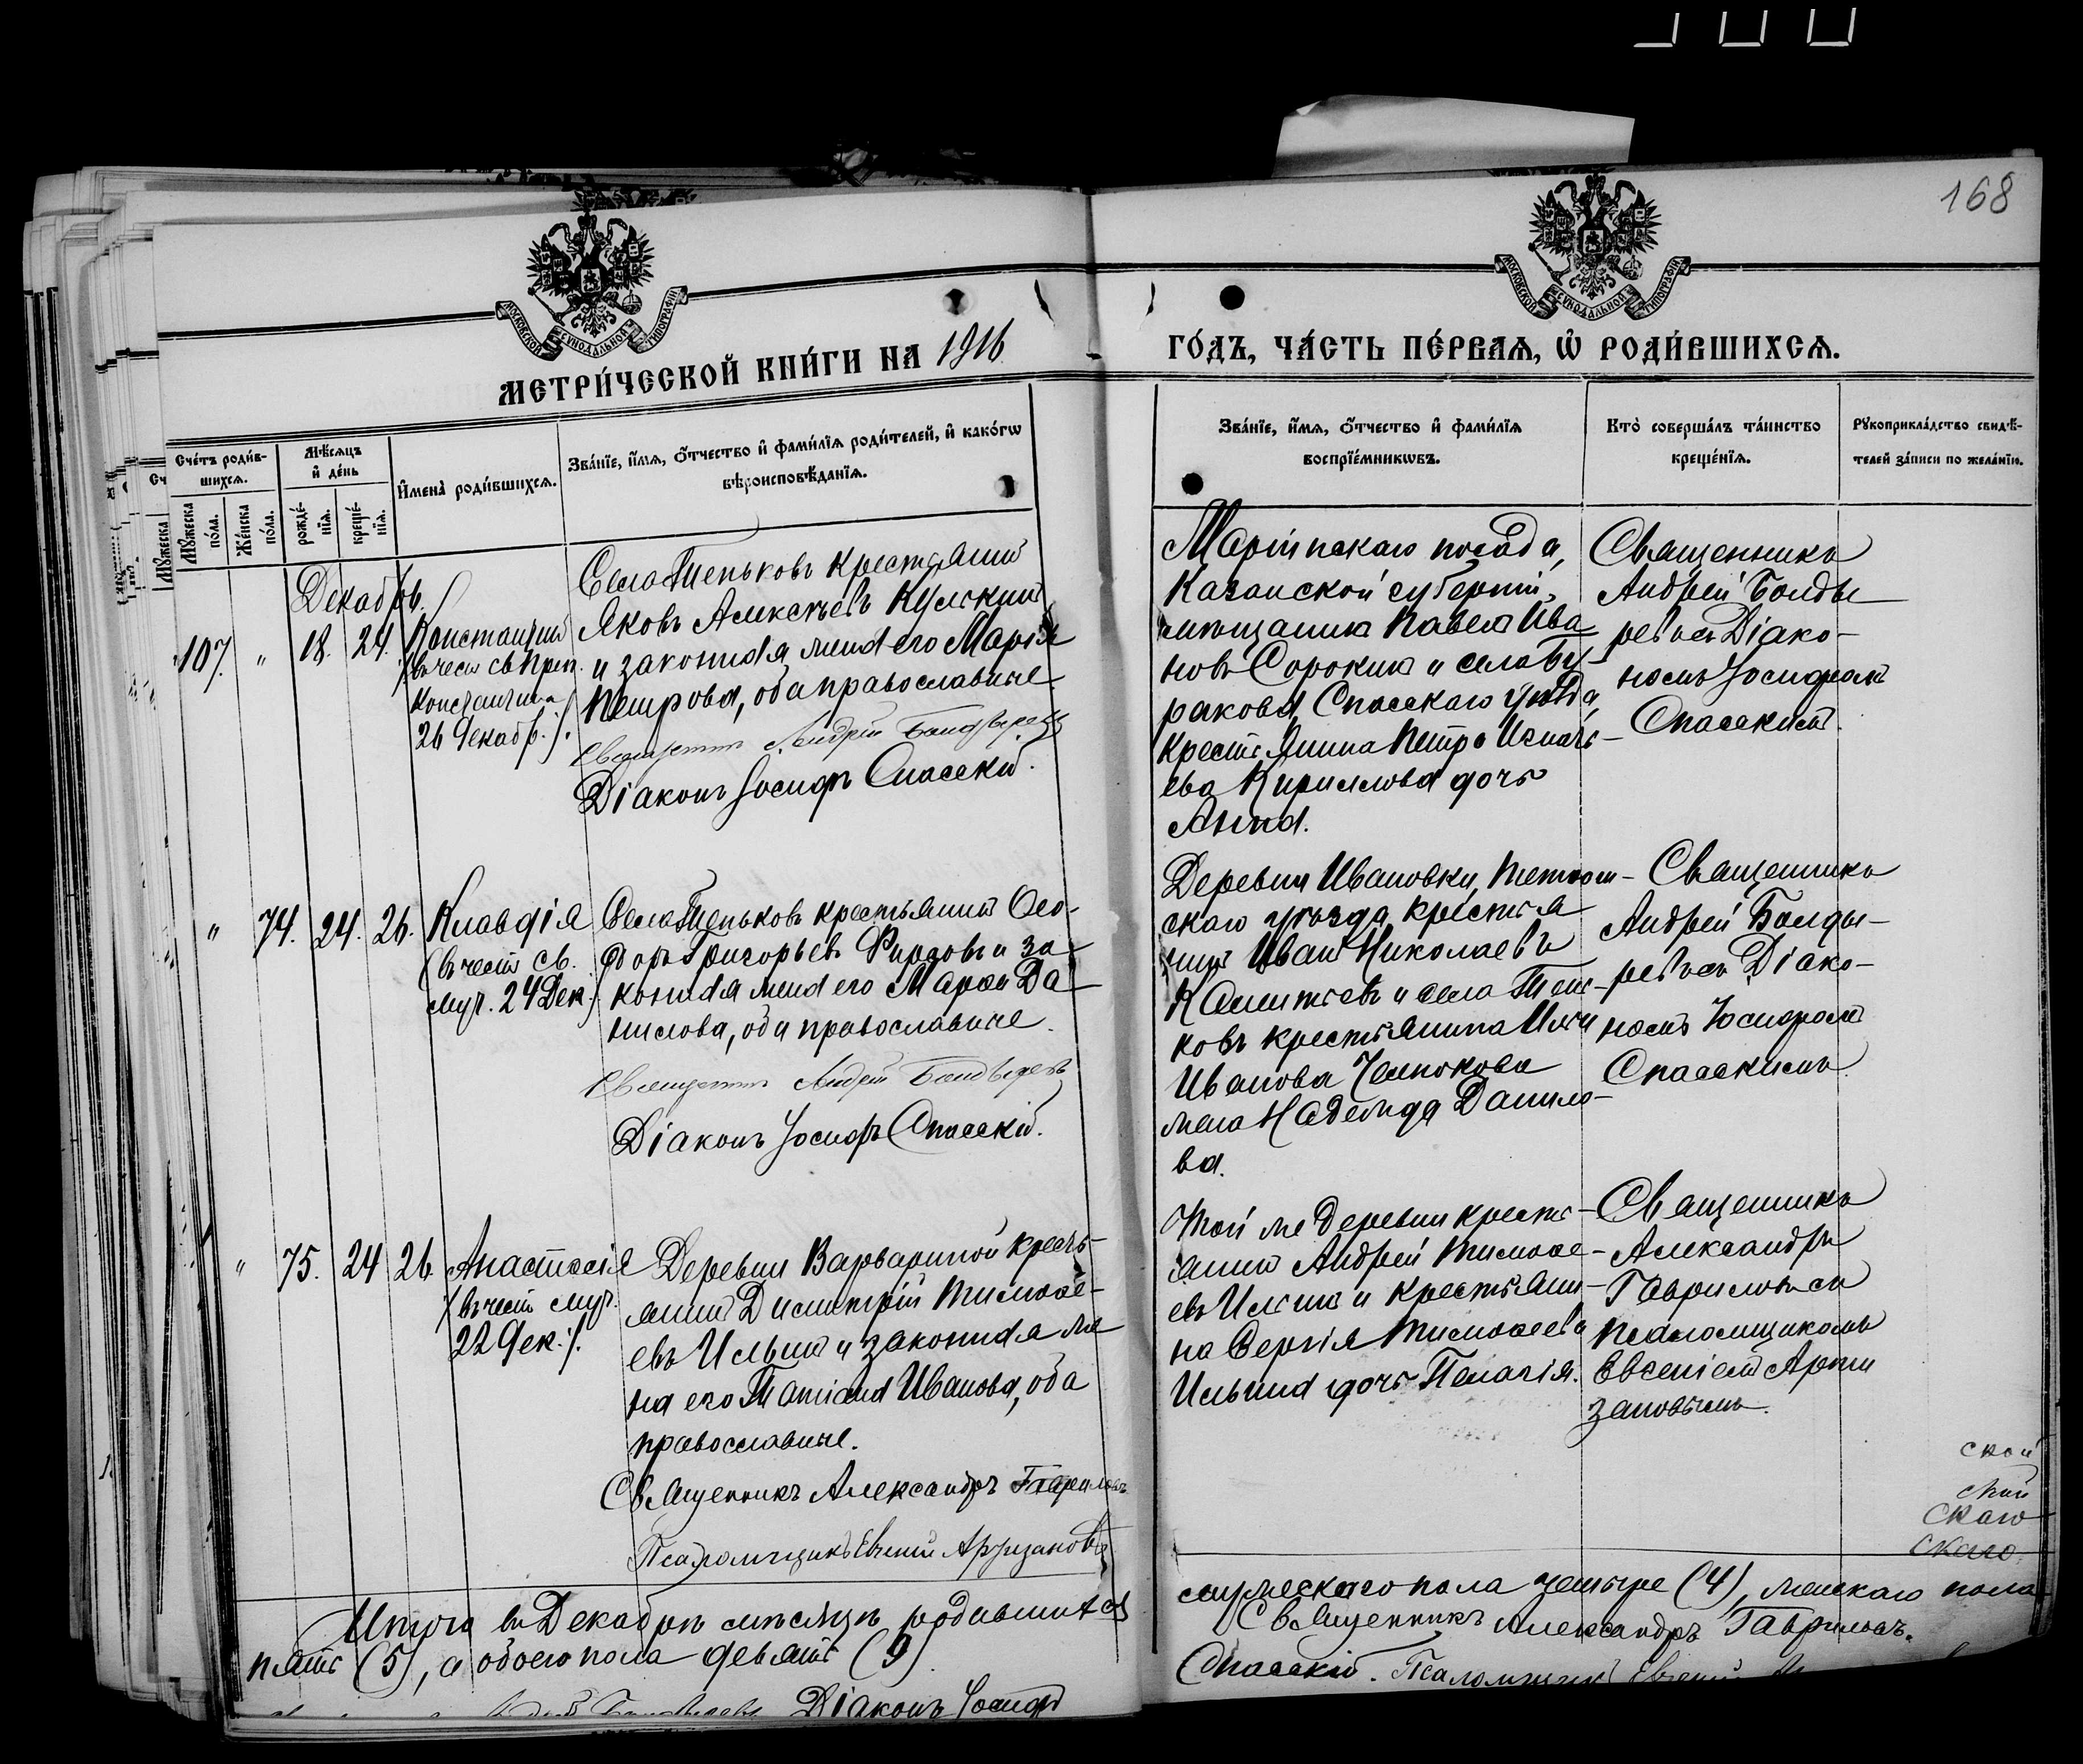 168
МОСКОВСКОЙ СѴНОДАЛЬНОЙ ТИПОГРАФІИ
МОСКОВСКОЙ СѴНОДАЛЬНОЙ ТИПОГРАФІИ
МЕТРИ́ЧЕСКОЙ КНИ́ГИ НА 1916
ГО́ДЪ, ЧА́СТЬ ПЕ́РВАЯ, Ѡ РОДИ́ВШИХСЯ.
Сче́тъ роди́в-
шихся.
Мꙋ́жеска по́ла.
Же́нска по́ла.
Мѣ́сяцъ
и҆ де́нь
рожде́-
нїя.
креще́-
нїя.
И҆мена̀ роди́вшихся.
Зва́нїе, и҆́мя, ѻ҆́тчество и҆ фамѝлїя роди́телей, и҆ како́гѡ
вѣроисповѣ́данїя.
Зва́нїе, и҆́мя, ѻ҆́тчество и҆ фами́лїя
воспрїе́мникѡвъ.
Кто̀ соверша́лъ та́инство
креще́нїя.
Рꙋкоприкла́дство свидѣ́-
телей за́писи по жела́нїю.
Декабрь.
107. " 18. 24.
Константинъ
(въ честь св. преп.
Константина
26 Декабр.).
Села Теньковъ крестьянинъ
Яковъ Алексѣевъ
и законная жена его Марія
Петрова, оба православные.
Священникъ Андрей Болдыревъ
Діаконъ Іосифъ Спасскій.
Маріинскаго посада,
Казанской губерніи,
мѣщанинъ Павелъ Ива
новъ Сорокинъ и села Бу-
ракова, Спасскаго уѣзда,
крестьянина Петра Игнать-
ева Кириллова дочь
Анна.
Священникъ
Андрей Болды-
ревъ съ Діако-
номъ Іосифомъ
Спасскимъ.
" 74. 24. 26.
Клавдія
(въ честь св.
муч. 24 Дек.)
Села Теньковъ крестьянинъ Ѳео-
доръ Григорьевъ и за-
конная жена его Марѳа Да-
нилова, оба православные.
Священникъ Андрей Болдыревъ
Діаконъ Іосифъ Спасскій.
Деревни Ивановки, Тетюш-
скаго уѣзда, крестья
нинъ Иванъ Николаевъ
и села Тень-
ковъ крестьянина Ильи
Иванова
жена Надежда Данило-
ва.
Священникъ
Андрей Болды-
ревъ съ Діако-
номъ Іосифомъ
Спасскимъ.
" 75. 24 26.
Анастасія
(въ честь муч.
22 Дек.).
Деревни Варвариной кресть-
янинъ Димитрій Тимоѳе-
евъ Ильинъ и законная же
на его Татіана Иванова, оба
православные.
Священникъ Александръ Гавриловъ
Псаломщикъ Евгеній Арзизановъ
Той же деревни кресть-
янинъ Андрей Тимоѳе-
евъ Ильинъ и крестьяни-
на Сергія Тимоѳеева
Ильина дочь Пелагія.
Священникъ
Александръ
Гавриловъ съ
псаломщикомъ
Евгеніемъ
зановымъ.
ской
скаго
скаго
Итого въ Декабрѣ мѣсяцѣ родившихся
мужескаго пола четыре (4), женскаго пола
пять (5), а обоего пола девять (9)
Священникъ Александръ Гавриловъ.
Діаконъ Іосифъ
Спасскій. Псаломщикъ Евгеній